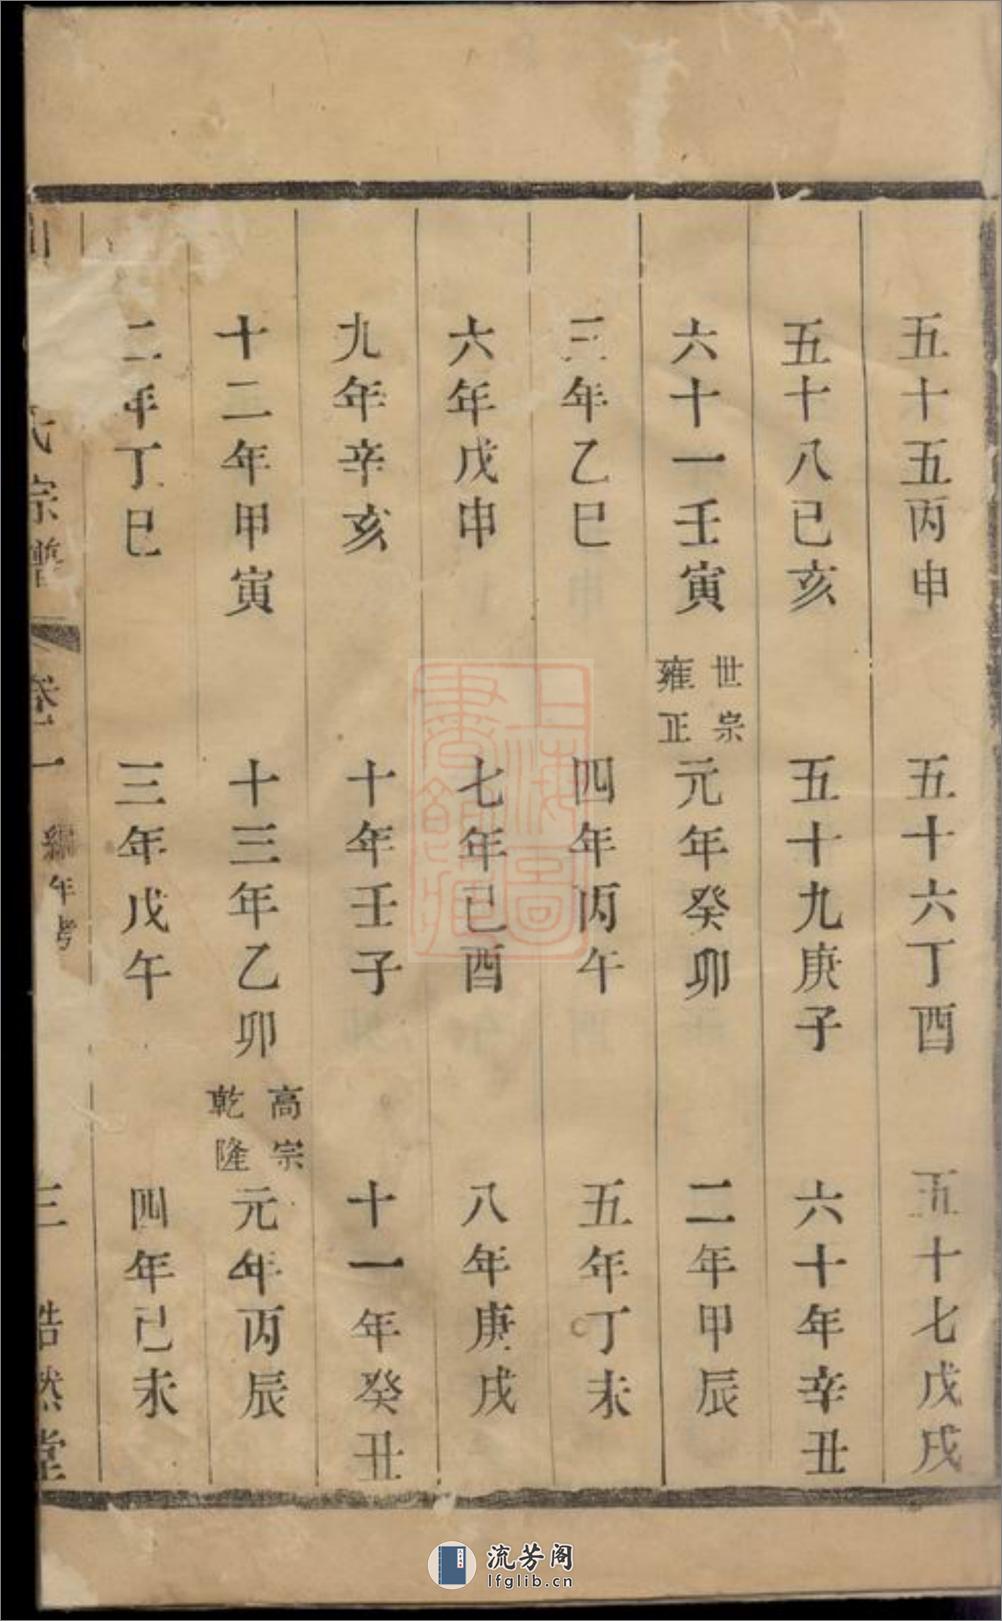 五十五丙申　五十六丁酉　五十七戊戌
五十八己亥　五十九庚子　六十年辛丑
六十一壬寅　世宗雍正元年癸卯　二年甲辰
三年乙巳　四年丙午　五年丁未
六年戊申　七年己酉　八年庚戌
九年辛亥　十年壬子　十一年癸丑
十二年甲寅　十三年乙卯　高宗乾隆元年丙辰
二年丁巳　三年戊午　四年己未
氏宗譜　卷一　編年考　三　浩然堂
上海圖書館藏
流芳阁
lfglib.cn